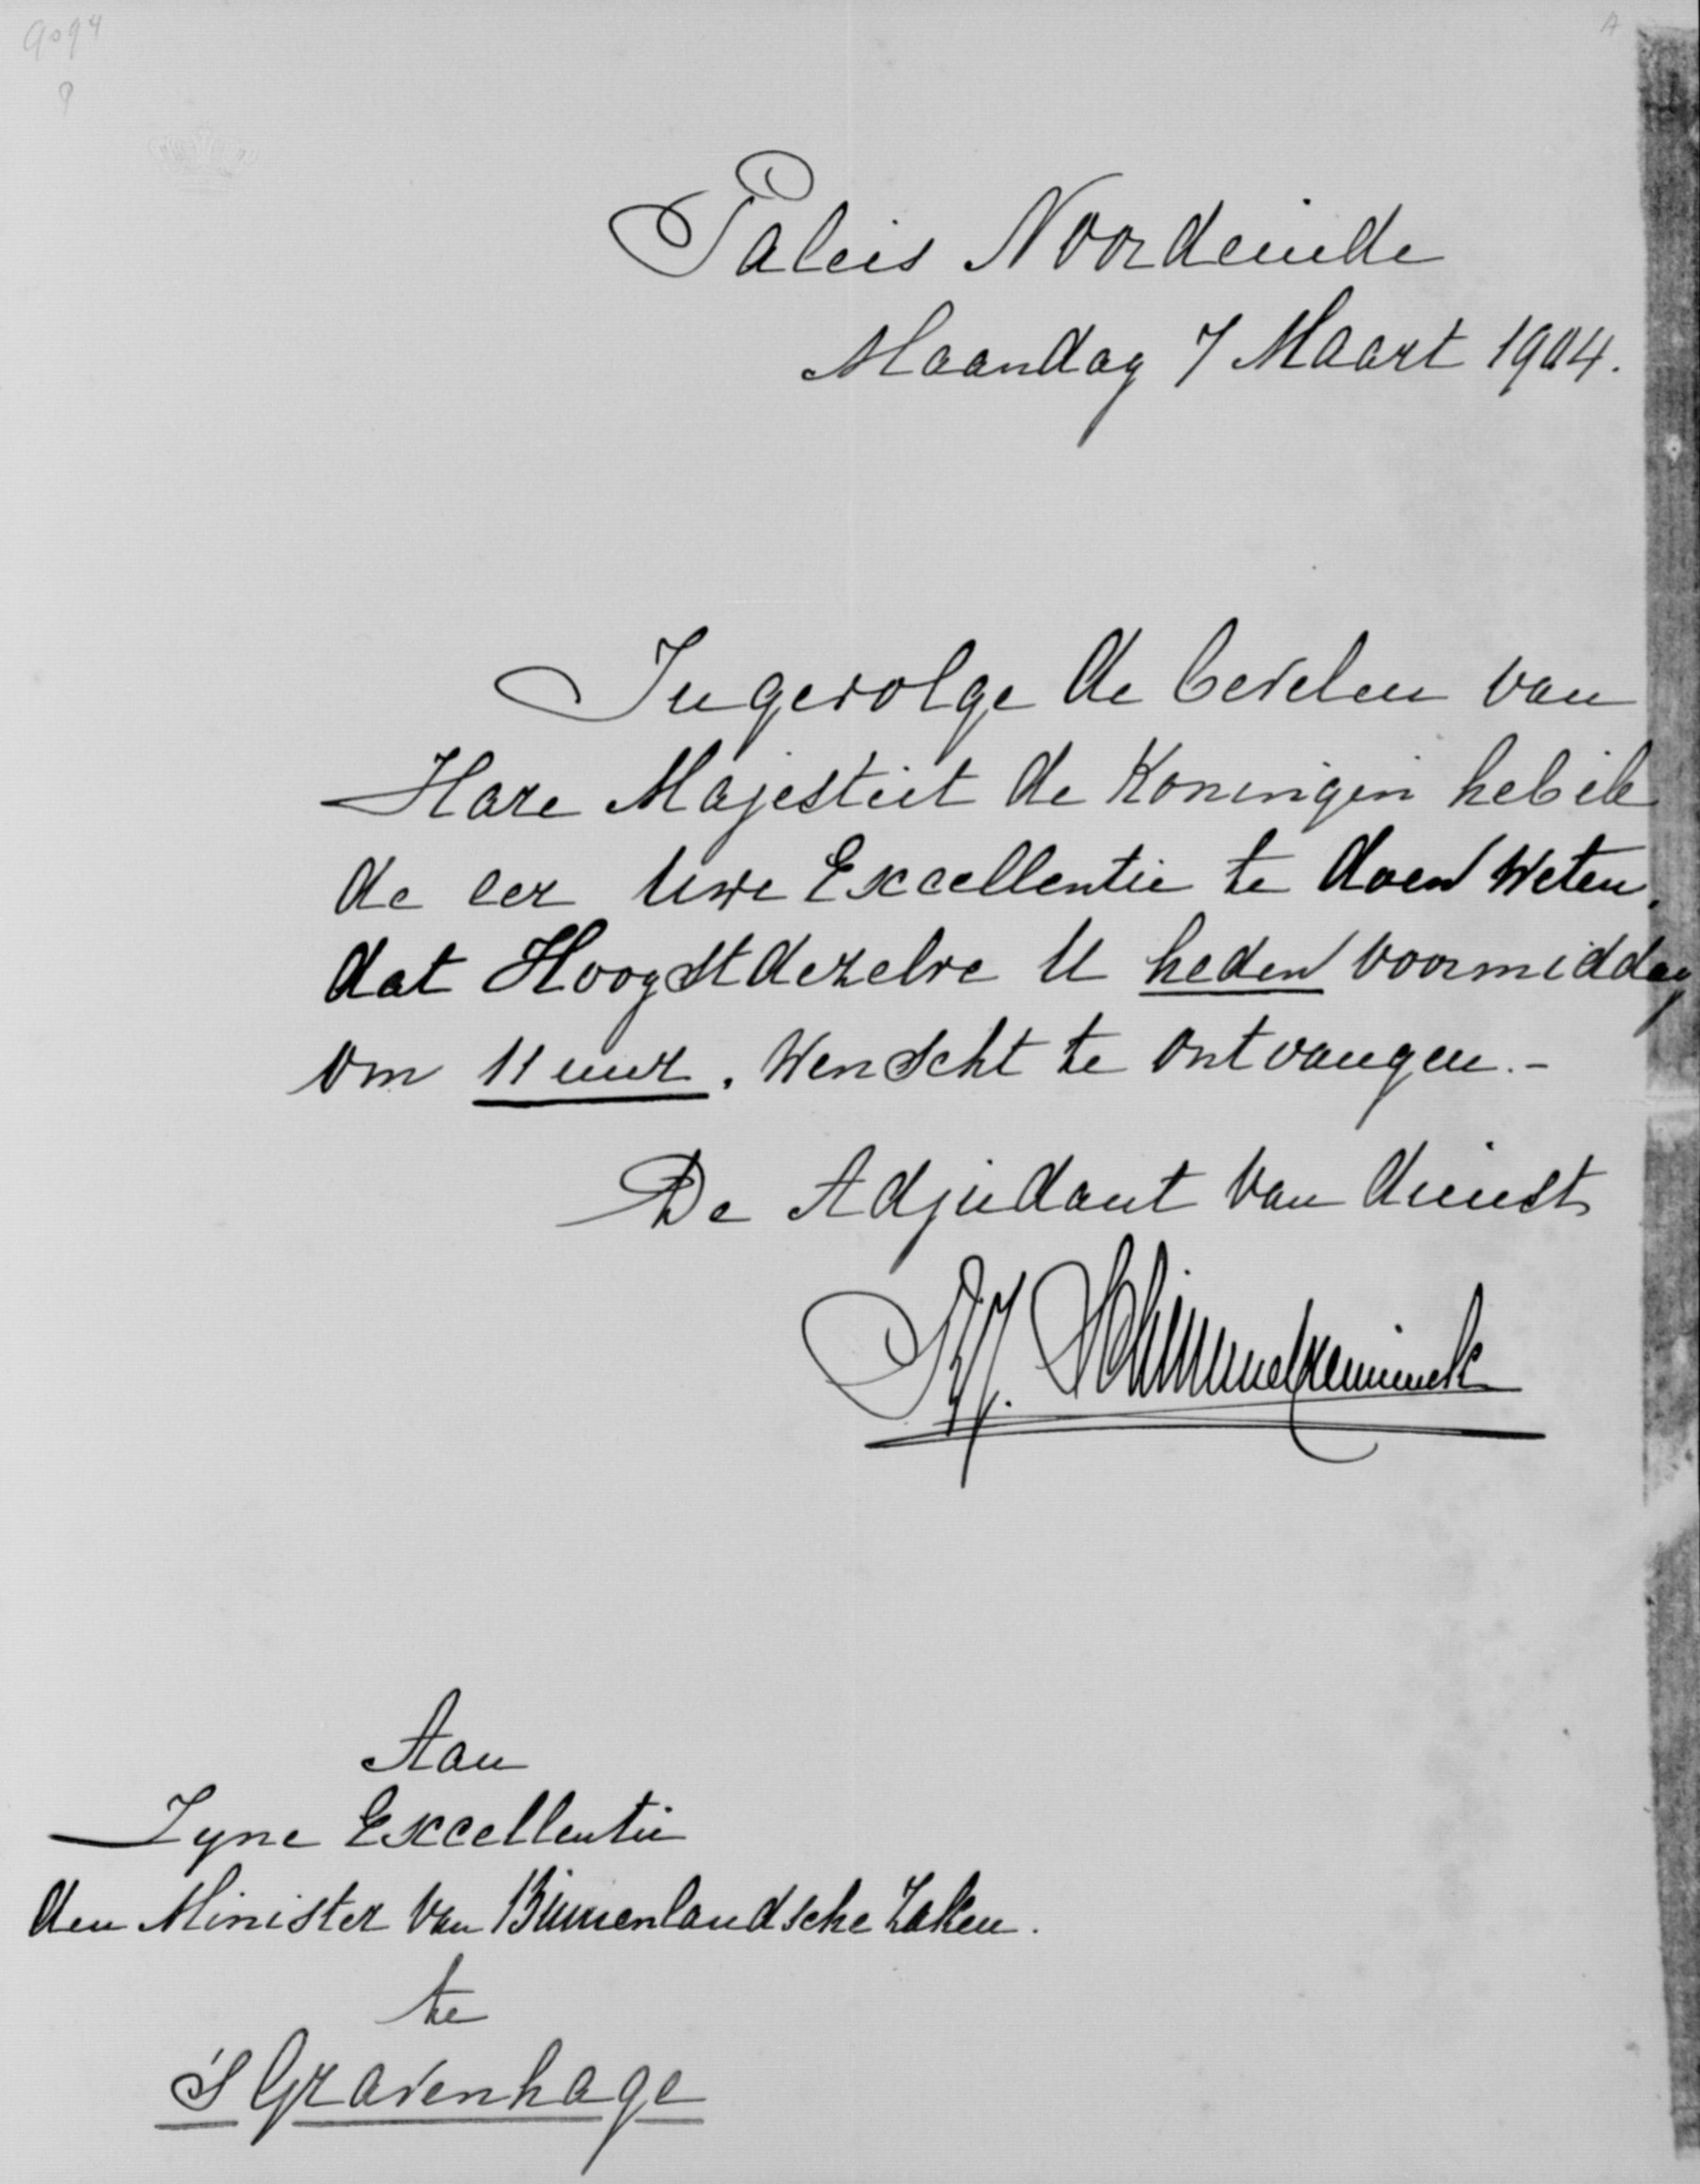 9094
Paleis Noordeinde
Maandag 7 Maart 1904.
Ingevolge de bevelen van
Hare Majesteit de Koningin heb ik
de eer Uwe Excellentie te doen weten,
dat Hoogstdezelve U heden voormiddag
om 11 uur. wenscht te ontvangen.-
De Adjudant van dienst
Schimmelpenninck
Aan
Zyne Excellentie
den Minister van Binnenlandsche Zaken.
te
's Gravenhage